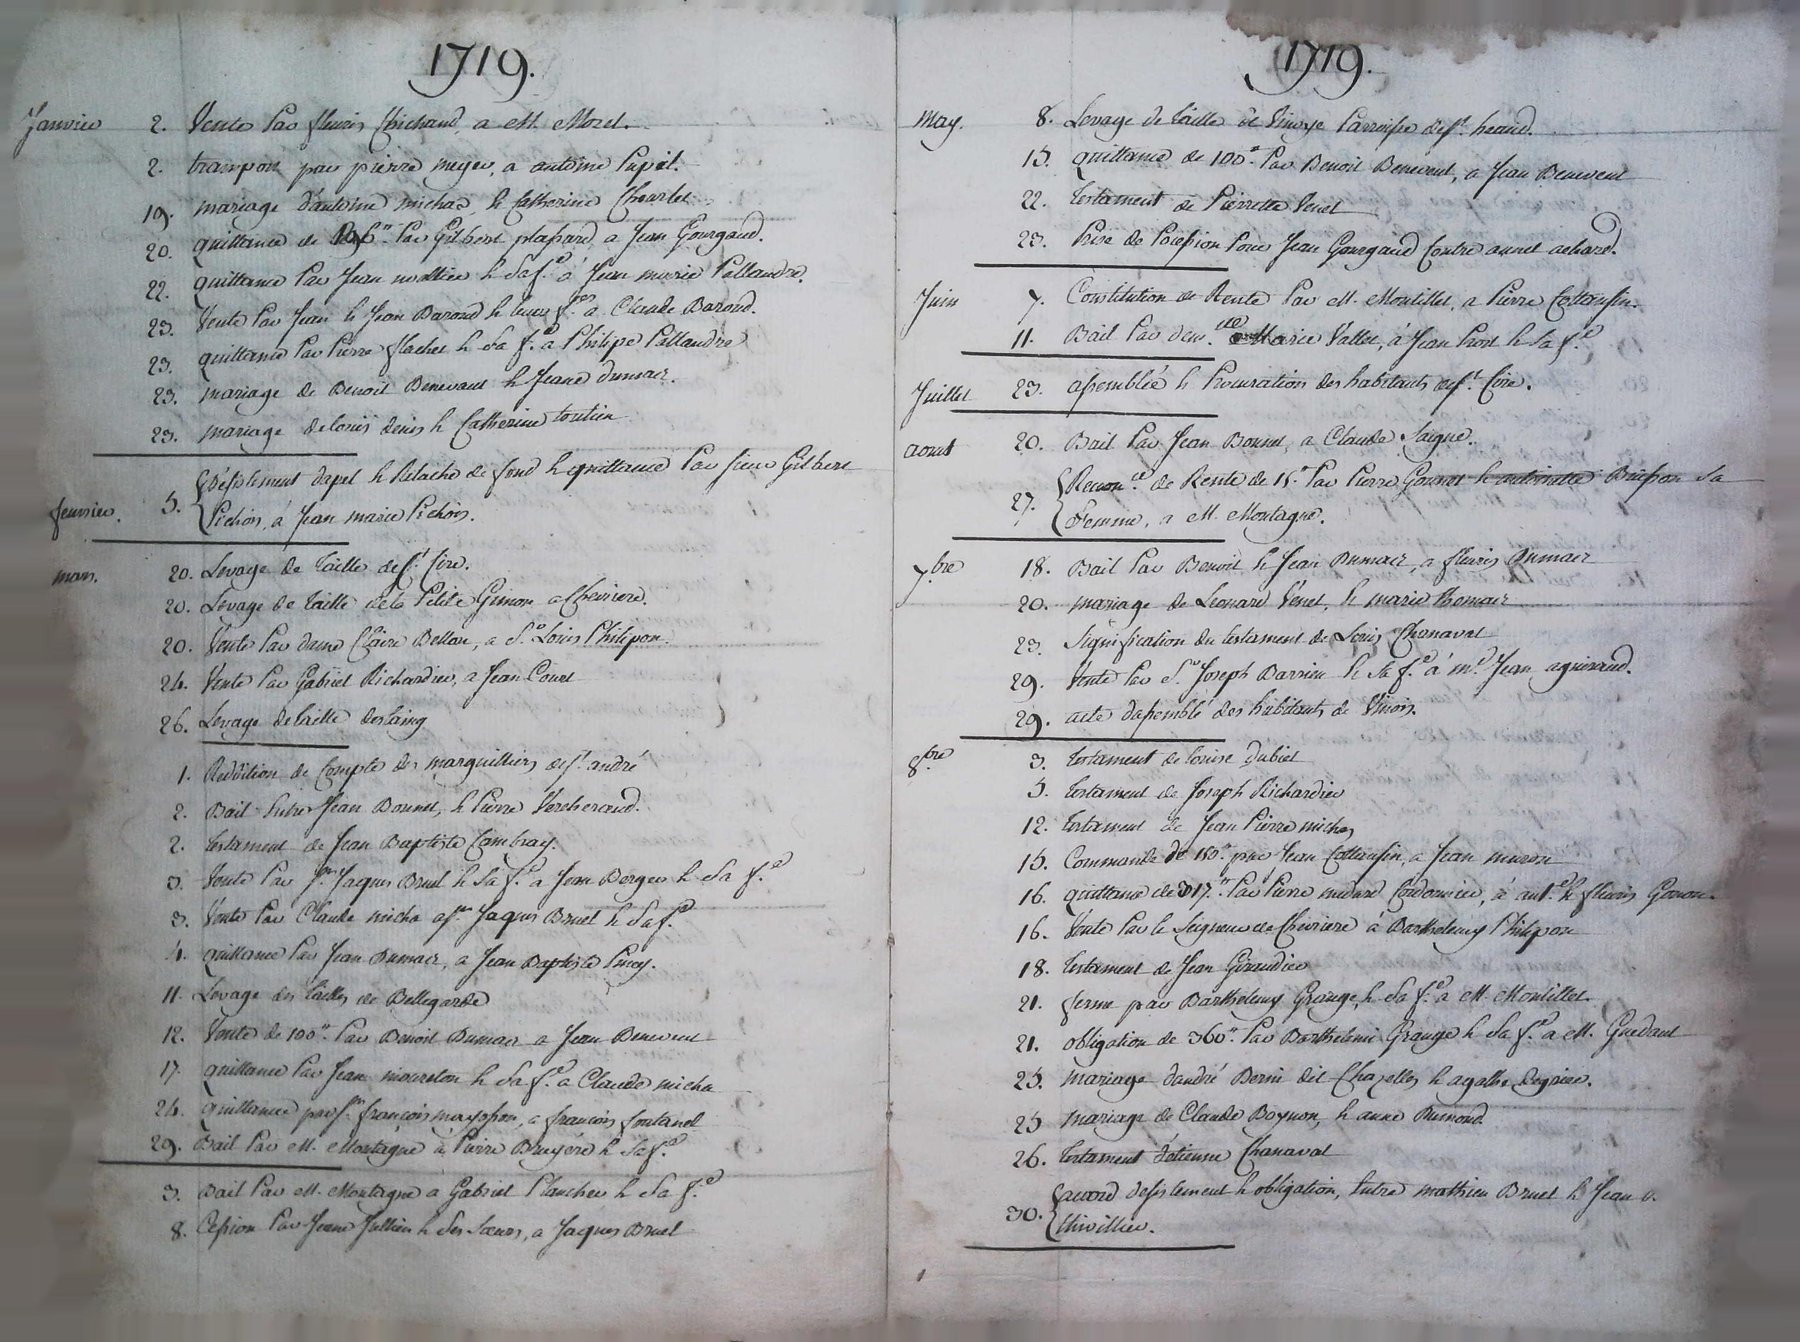 1719.
Janvier 2. Vente Par fleuris Chichaud, a M. Morel.
2. transport par pierre meyer, a antoine Pupil.
19. mariage d'antoine michas, & Catherine
20. quittance de Par Gilbert plaßard, a Jean Gourgaud.
22. quittance Par Jean & Sa f.e a Jean marie Pallandre.
23. Vente Par Jean & Jean Barond & leurs f.es a Claude Barond.
23. quittance Par Pierre flachet & Sa f.e a Philipe Pallandre
23. mariage de Benoit Benevant & Jeane dumais.
23. mariage de louis denis & Catherine toutien
feuvrier. 5. { désistement dapel & Relache de fond & quittance Par sieur Gilbert
Pichon, à Jean marie Pichon.
mars. 20. Levage de taille de st. Cire.
20. Levage de taille de la Petite Gimon a Chevriere.
20. Vente Par dame Claire Bellou, a S.r Louis Philipon.
24. Vente Par Gabriel Richardier, a Jean Court
26. Levage de taille
1. Reddition de Compte des marguilliers de st. andré
2. Bail Entre Jean Bonnet, & Pierre Vercherand.
2. testament de Jean Baptiste Combray.
3. Vente Par Jaques Bruel & Sa f.e a Jean Berger & Sa f.e
3. Vente Par Claude micha a Jaques Bruel & Sa f.e
4. quittance Par Jean Dumais, a Jean Baptiste
11. Levage des tailles de Bellegarde
12. Vente de 100.tt Par Benoit Dumais a Jean Benevent
17. quittance Par Jean mourelon & Sa f.e a Claude micha
24. quittance par françois a françois fontanel
29. Bail Par M. Montagne à Pierre Bruyère & Sa f.e
3. Bail Par M. Montagne a Gabriel Plancher & Sa f.e
8. Ceßion Par Jeane Jullien & Ses Sœurs, a Jaques Bruel
1719.
May. 8. Levage de taille de Parroiße de st. heand.
15. quittance de 100.tt Par Benoit Benevent, a Jean Benevent
22. testament de Pierrette Venet
23. Prise de Poseßion Pour Jean Gourgaud Contre annet achard.
Juin 7. Constitution de Rente Par M. Montillet, a Pierre Cottanßin.
11. Bail Par dem.lle Marie Vallet, à Jean Prost & Sa f.e
Juillet 23. aßemblée & Procuration des habitants de st. Cire.
aoust 20. Bail Par Jean Bonnet, a Claude Saigne.
27. { Recon.ce de Rente de 15.tt Par Pierre & antoinette Buißon Sa
Femme, a M. Montagne.
7.bre 18. Bail Par Benoit & Jean Dumais, a fleuris Dumais
20. mariage de Leonard Venet, & marie
23. Signification du testament de Louis Chanavat
29. Vente Par S.r Joseph Barrieu & Sa f.e à m.e Jean aguiraud.
29. acte daßemblé des habitants de
8.bre 3. testament de louise dubiet
5. testament de Joseph Richardier
12. testament de Jean Pierre michas
15. Commande de 150.tt par Jean Cottanßin, a Jean muron
16. quittance de 317.tt Par Pierre Cordonnier, à ant.e & fleuris Gonon.
16. Vente Par le Seigneur de Chevriere à Barthelemy Philipon
18. testament de Jean Giraudier
21. ferme par Barthelemy Grange, & Sa f.e a M. Montillet.
21. obligation de 360.tt Par Barthelemi Grange & Sa f.e a M. Guedant
25. mariage dandré Berni dit Chazelles & agathe degrise.
25 mariage de Claude Boynon, & anne Dumond
26. testament détienne Chanavat
30. { acord desistement & obligation, Entre mathieu Bruel & Jean